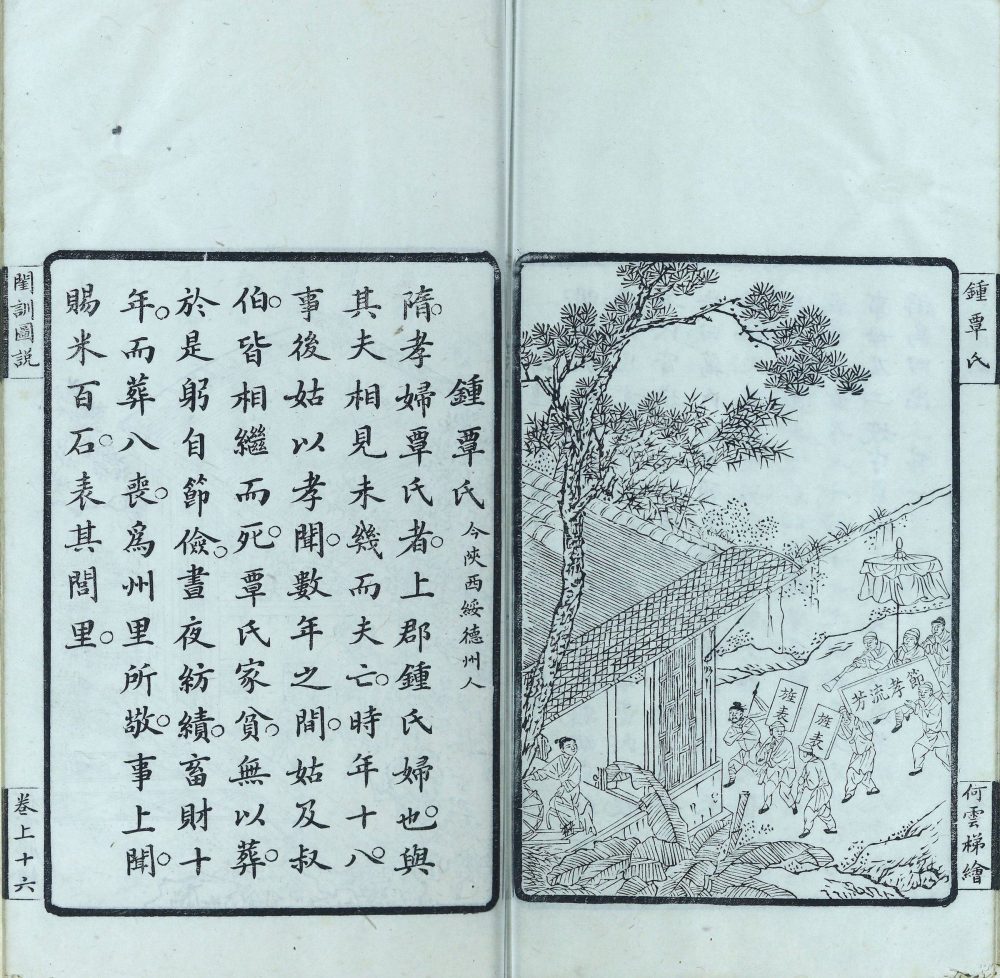 鍾覃氏
何雲梯繪
節孝流芳
旌表
旌表
鍾覃氏 今陝西綏德州人
隋。孝婦覃氏者。上郡鍾氏婦也。與
其夫相見未幾而夫亡。時年十八。
事後姑以孝聞。數年之間。姑及叔
伯。皆相繼而死。覃氏家貧。無以葬。
於是躬自節儉。晝夜紡績。畜財十
年。而葬八喪。為州里所敬。事上聞。
賜米百石。表其閭里。
閨訓圖說
卷上十六